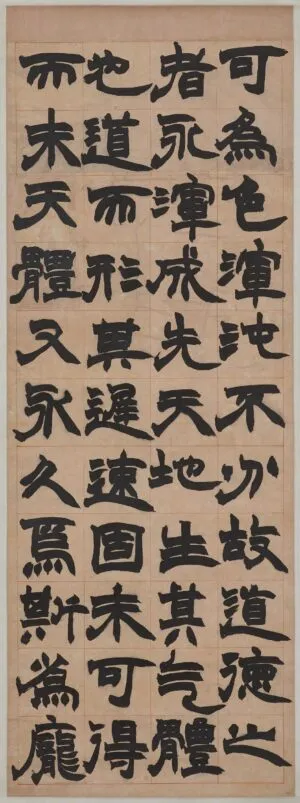 可為色渾沌不分故道德之
者永渾成先天地生其气體
也道而形其遲速固未可得
而未天體又永久焉斯為龐